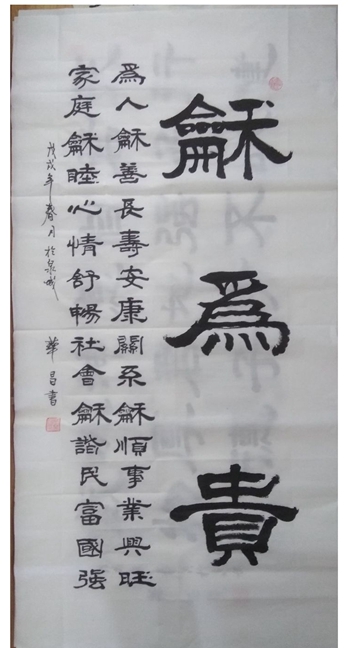 龢為貴
為人龢善長壽安康關系龢順事業興旺
家庭龢睦心情舒暢社會龢諧民富國强
戊戌年春月於泉城 華昌書